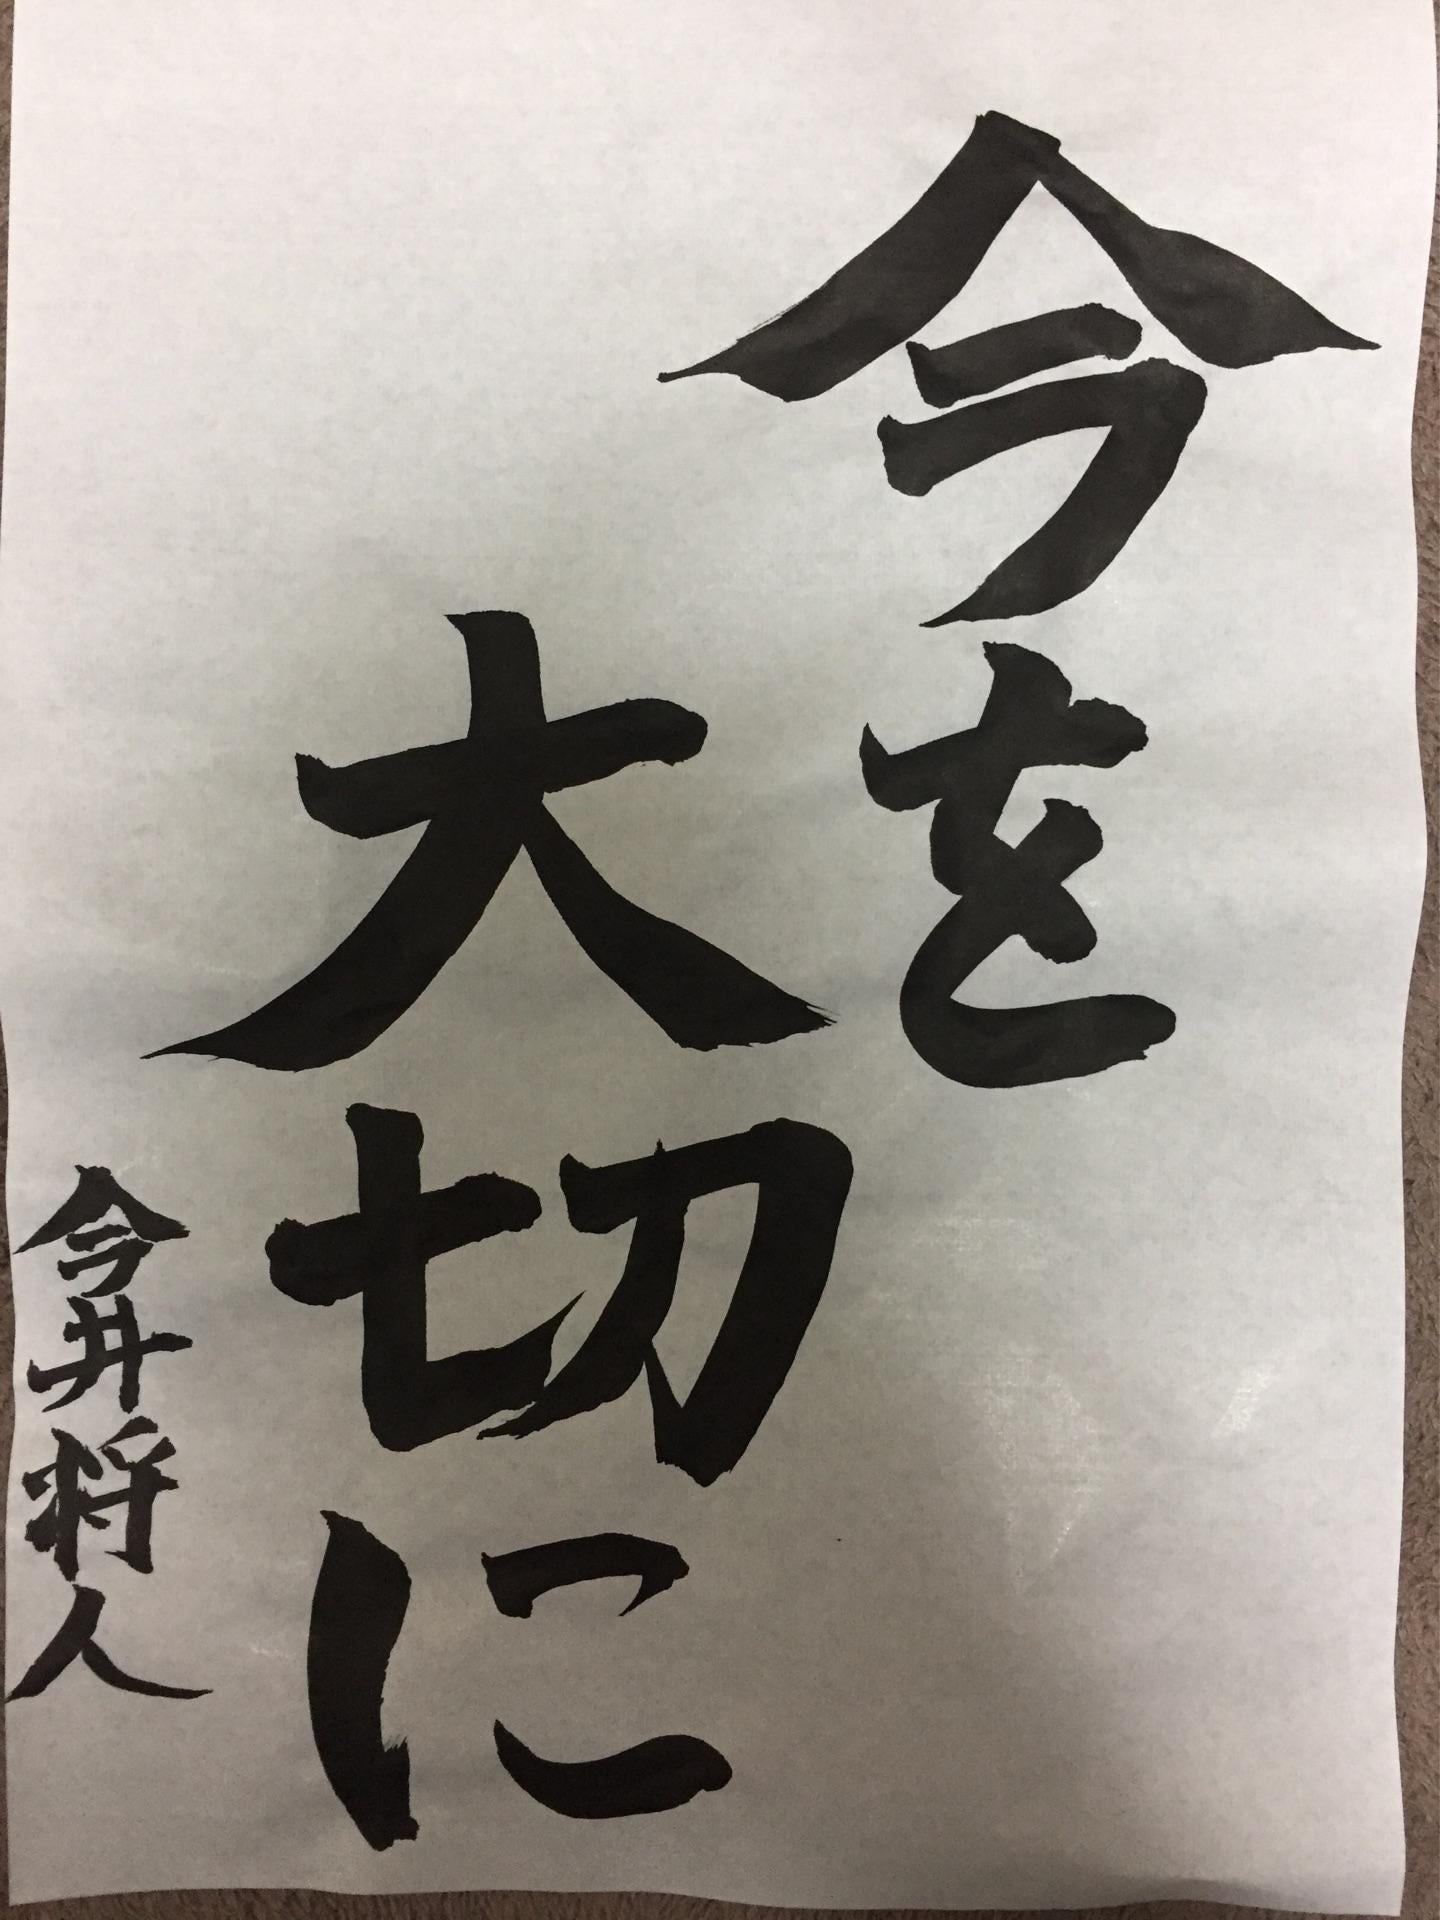 今を
大切に
今井将人